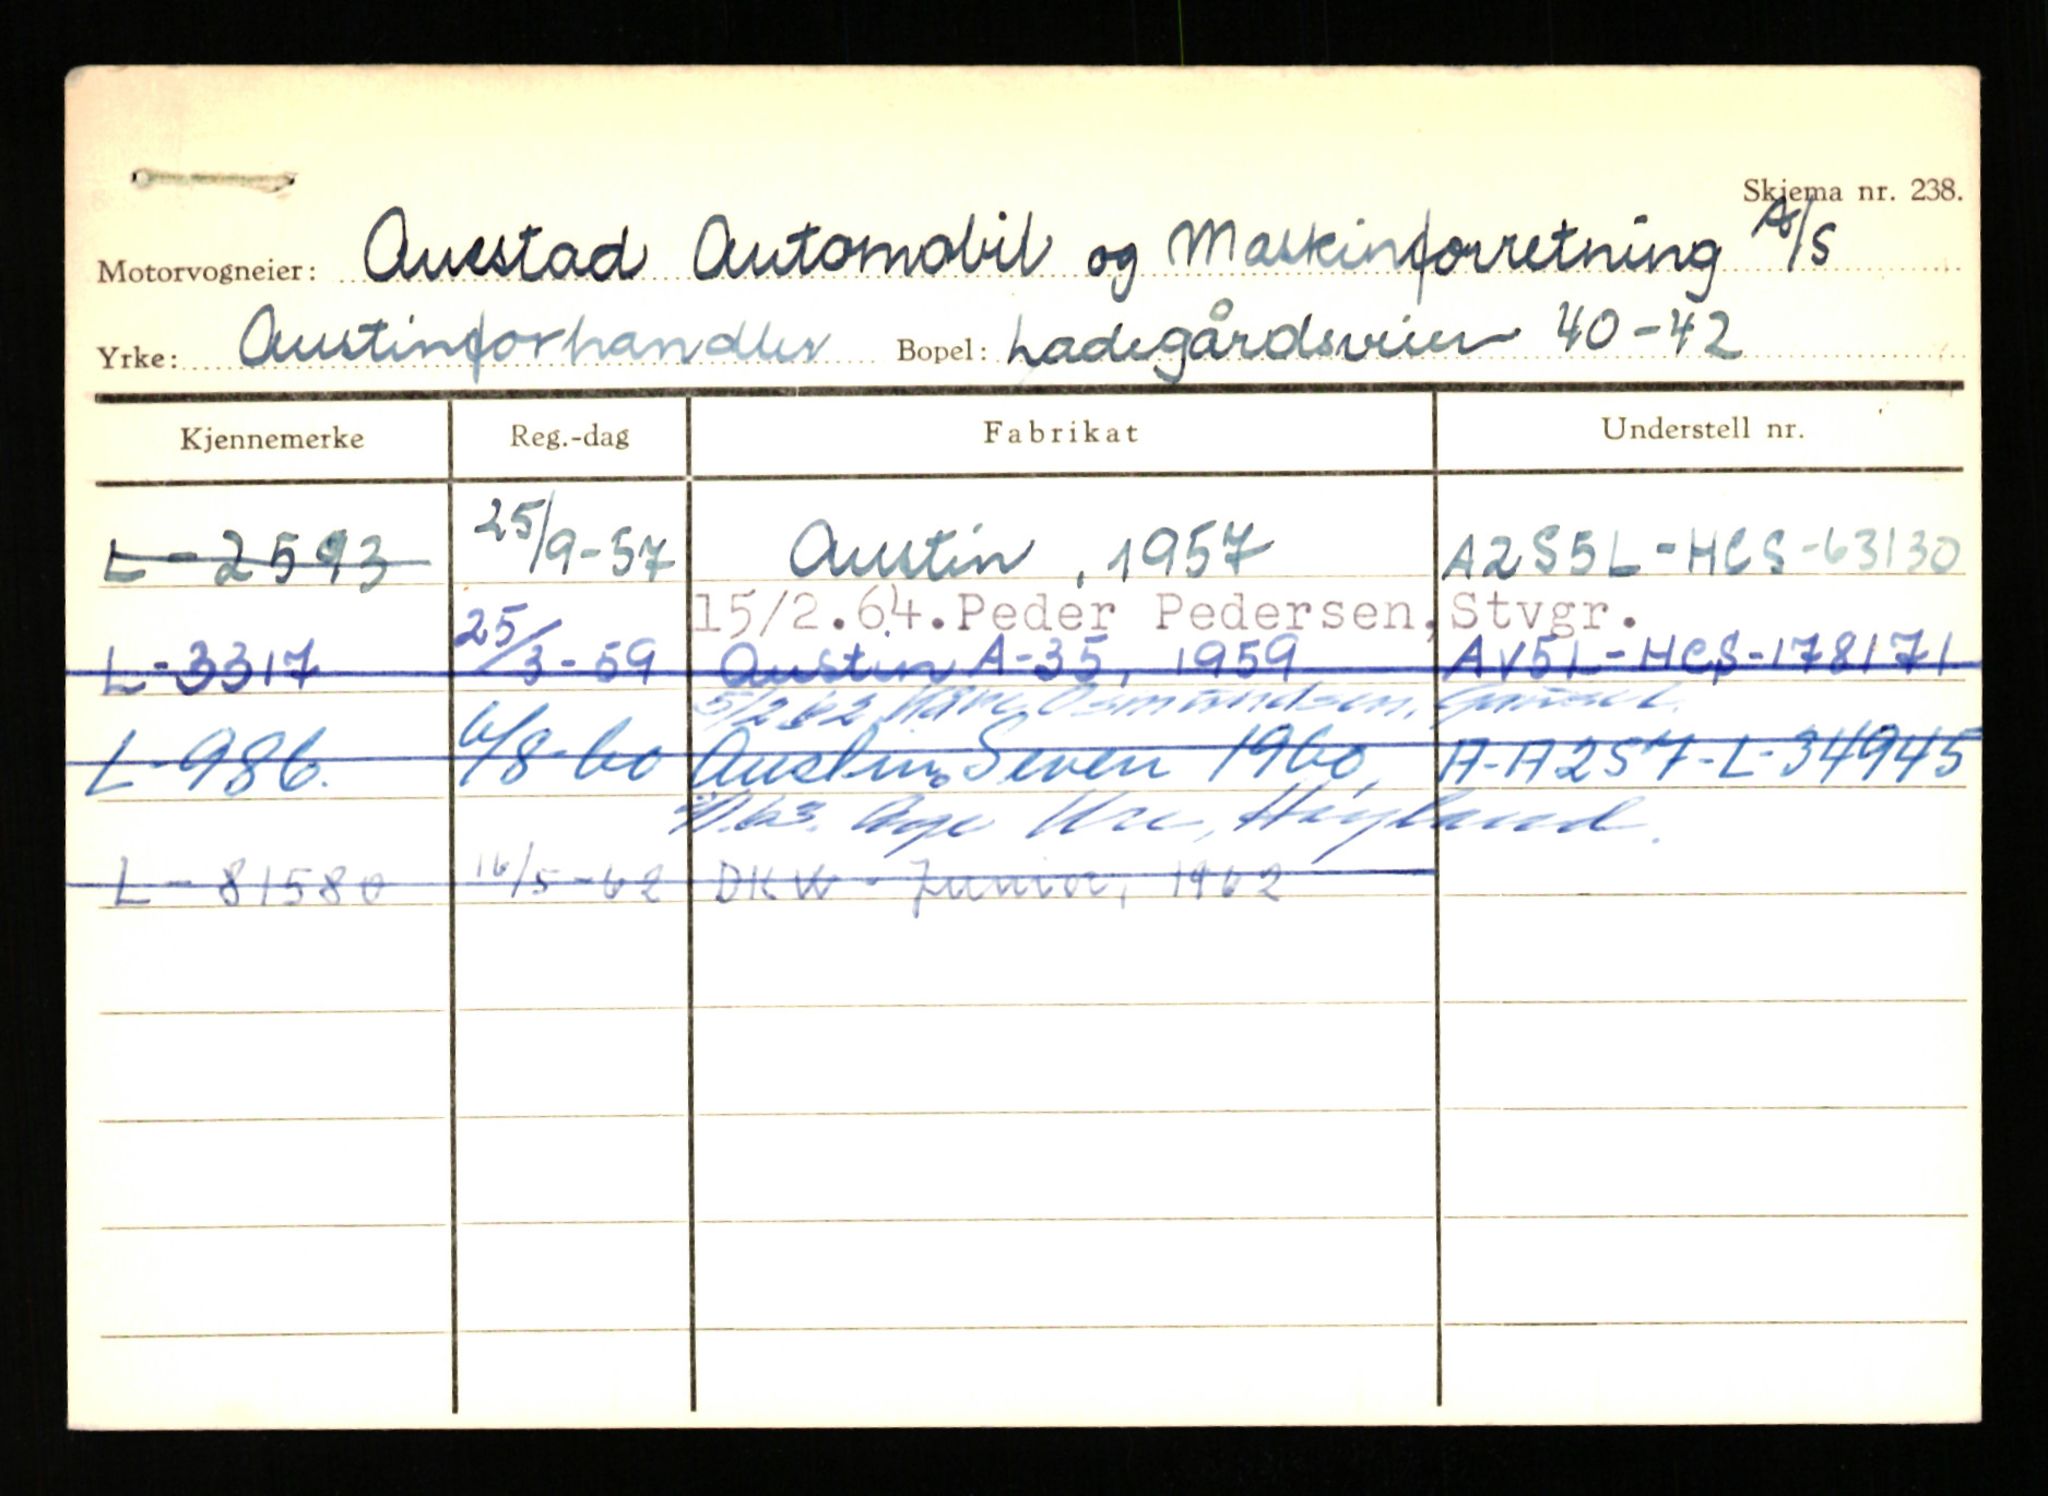 Skjema nr. 238.
Motorvogneier: Auestad Automobil og Maskinforretning A/S
Yrke: Austinforhandler Bopel: Ladegårdsveien 40-42
Kjennemerke Reg.-dag Fabrikat Understell nr.
L-2593 25/9-57 Austin, 1957 A2S5L-HCS-63130
15/2.64. Peder Pedersen, Stvgr.
L-3317 25/3-59 Austin A-35, 1959 AV5L-HCS-178171
5/2 62 Osmundsen,
L-986. 6/8-60 Austin Seven 1960, A-A2S7-L-34945
Åge Ure, Høyland.
L-81580 16/5-62 DKW-Junior, 1962